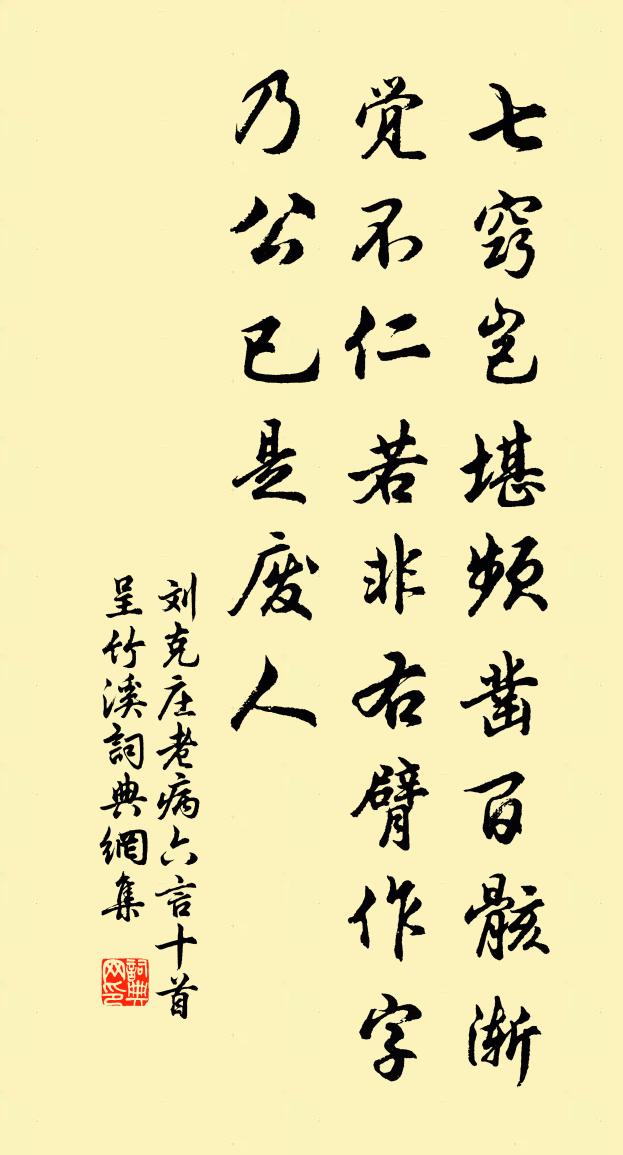 七窍岂堪频凿百骸渐
觉不仁若非右臂作字
乃公已是废人
刘克庄老病六言十首
呈竹溪詞典網集
詞典網印